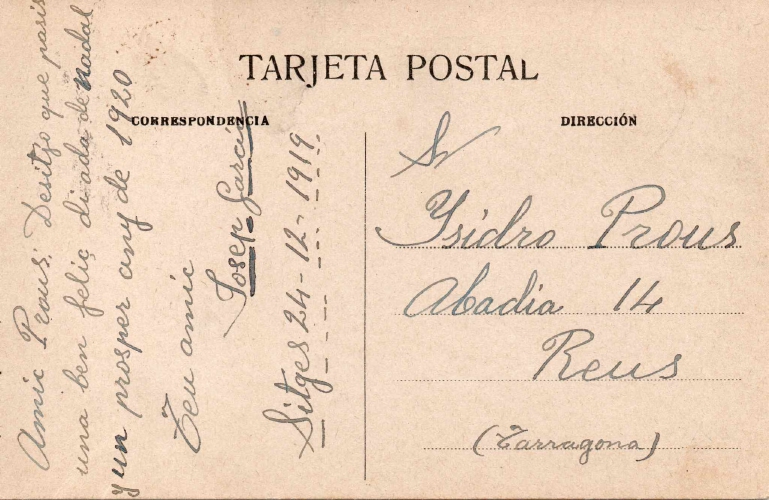 TARJETA POSTAL
CORRESPONDENCIA
Amic Prous: Desitjo que pasis
una ben feliç diada de nadal
y un prosper any de 1920
Teu amic
Josep Garcia
Sitges 24-12-1919
DIRECCIÓN
Sr
Ysidro Prous
Abadia 14
Reus
(Tarragona)